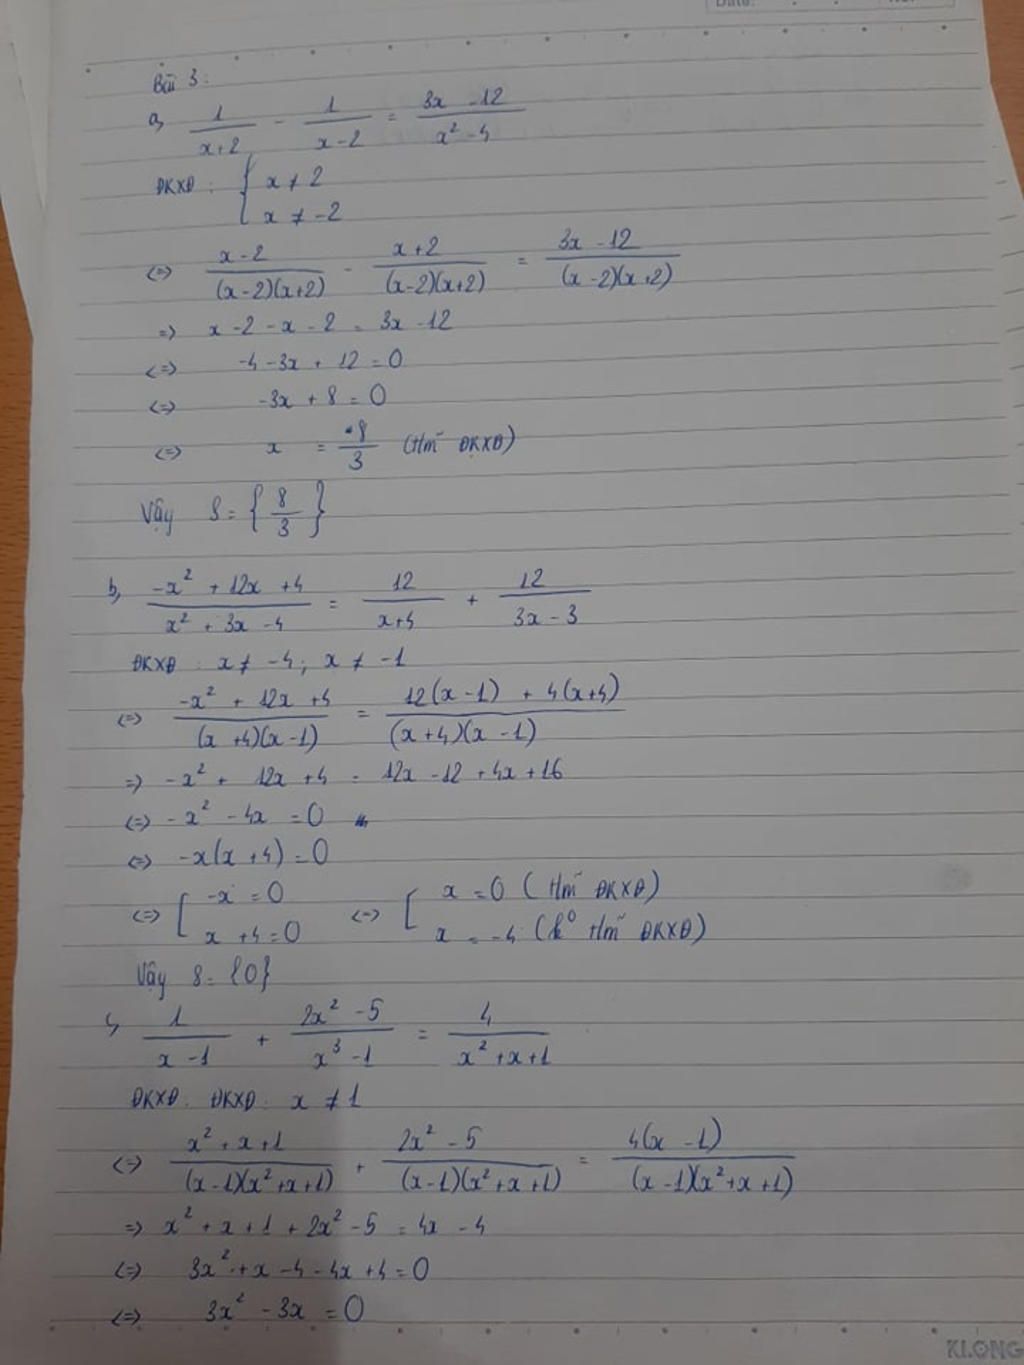 Date:
Bài 3:
a, 1/(x+2) - 1/(x-2) = (3x -12)/(x² -4)
ĐKXĐ: { x ≠ 2
x ≠ -2
<=> (x-2)/((x-2)(x+2)) - (x+2)/((x-2)(x+2)) = (3x -12)/((x-2)(x+2))
=> x -2 - x - 2 = 3x -12
<=> -4 -3x + 12 = 0
<=> -3x + 8 = 0
<=> x = 8/3 (tm̃ ĐKXĐ)
Vậy S = {8/3}
b, (-x² + 12x + 4)/(x² + 3x -4) = 12/(x+4) + 12/(3x - 3)
ĐKXĐ: x ≠ -4; x ≠ -1
<=> (-x² + 12x + 4)/((x+4)(x-1)) = (12(x-1) + 4(x+4))/((x+4)(x-1))
=> -x² + 12x + 4 = 12x -12 + 4x + 16
<=> -x² - 4x = 0
<=> -x(x+4) = 0
<=> [ -x = 0 <=> [ x = 0 (tm̃ ĐKXĐ)
x + 4 = 0 x = -4 (k⁰ tm̃ ĐKXĐ)
Vậy S = {0}
c, 1/(x-1) + (2x² -5)/(x³ -1) = 4/(x² + x + 1)
ĐKXĐ: ĐKXĐ: x ≠ 1
<=> (x² + x + 1)/((x-1)(x²+x+1)) + (2x² - 5)/((x-1)(x²+x+1)) = 4(x -1)/((x-1)(x²+x+1))
=> x² + x + 1 + 2x² - 5 = 4x - 4
<=> 3x² + x - 4 - 4x + 4 = 0
<=> 3x² - 3x = 0
KLONG